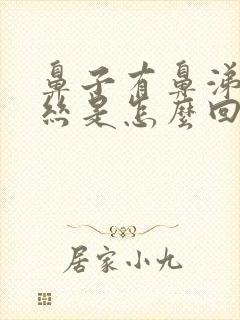 鼻子有鼻涕
絲是怎麼回
居家小九